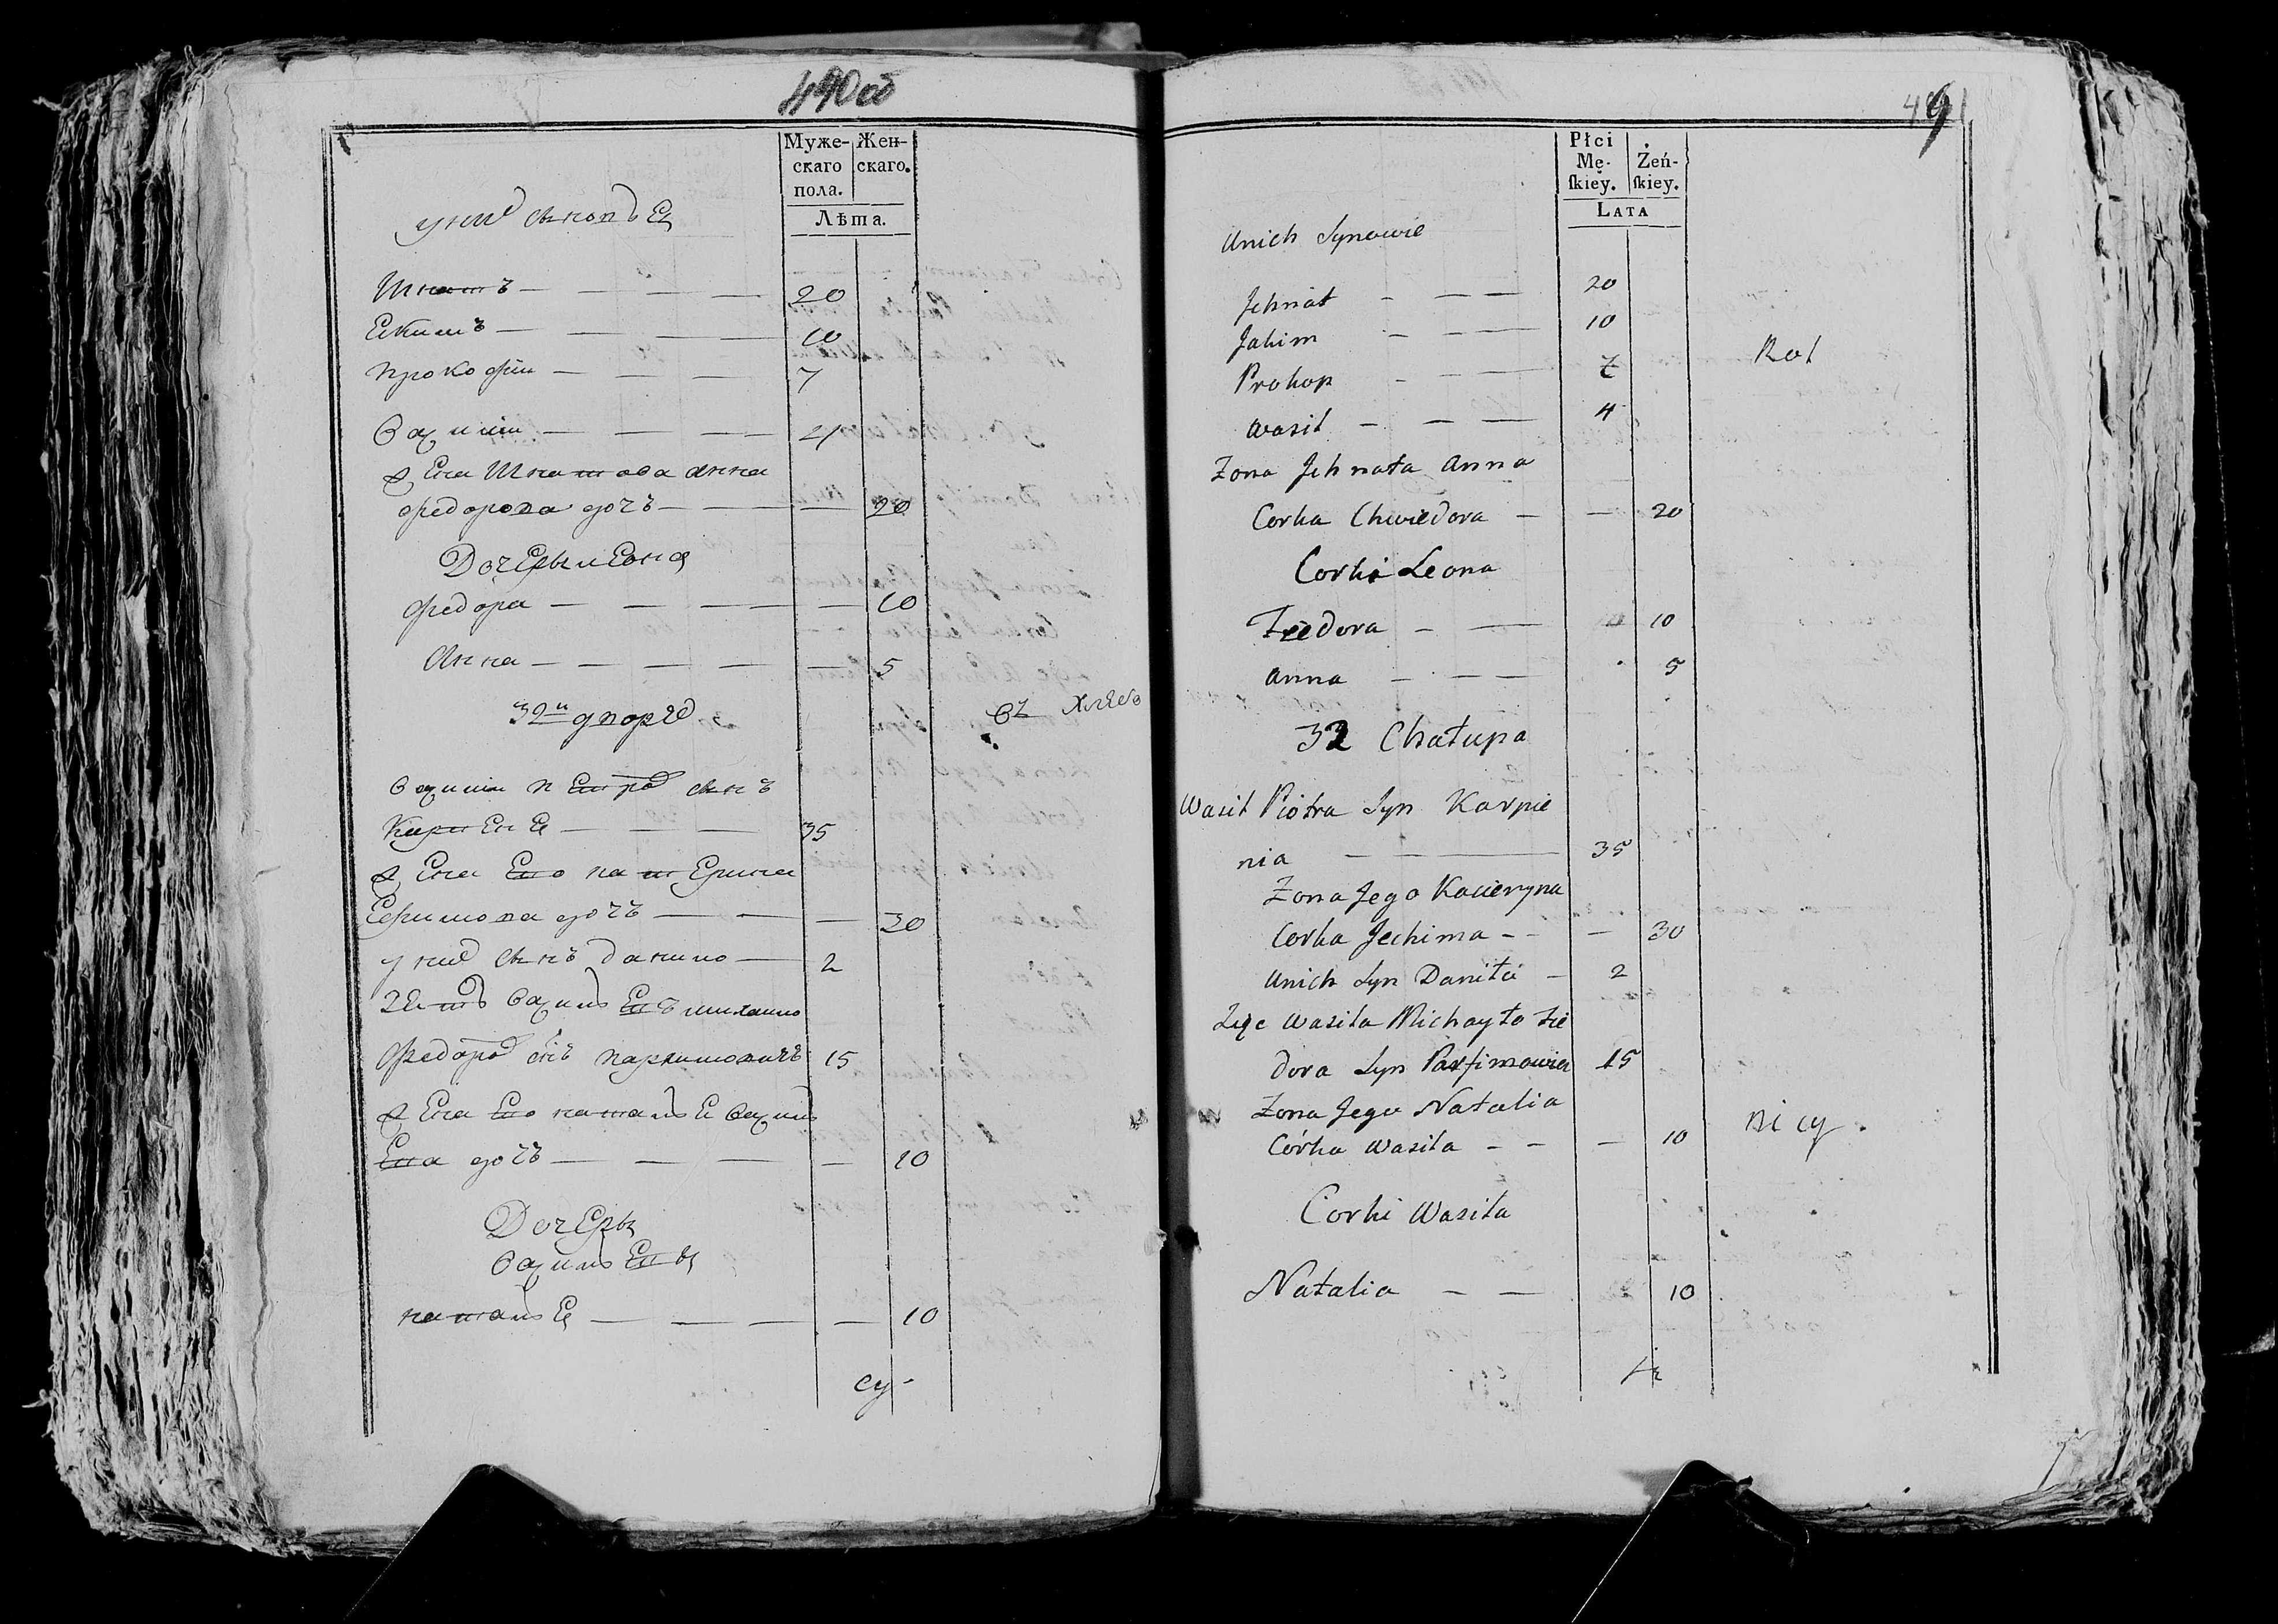 490 об
Муже-
скаго
пола.
Жен-
скаго.
Лѣта.
у них сыновья
Игнатъ 20
Екимъ 10
прокофiи 7
василiи 4
жена Игнатова анна
федорова дочъ 20
Дочеры леона
федора 10
Анна 5
32й дворъ
василiи петров сынъ
карпеня 35
жена его катерина
Ефимова дочъ 30
у них сынъ данило 2
зять василевъ михаило
федоров снъ парфимовичъ 15
жена его наталья василь
ева дочъ 10
Дочеры
васильевы
наталья 10
су
491
Płci
Mę-
ſkiey.
Żeń-
ſkiey.
Lata
Unich Synowie
Jehnat 20
Jakim 10
Prokop 7
Wasil 4
Zona Jehnata Anna
Corka Chwiedora 20
Corki Leona
Fiedora 10
Anna 5
32 Chałupa
Wasil Piotra Syn Karpie
nia 35
Zona Jego Kacieryna
Corka Jechima 30
Unich Syn Daniła 2
Zięc Wasila Michayło Fie
dora Syn Parfimowicz 15
Zona Jego Natalia
Córka Wasila 10
Corki Wasila
Natalia 10